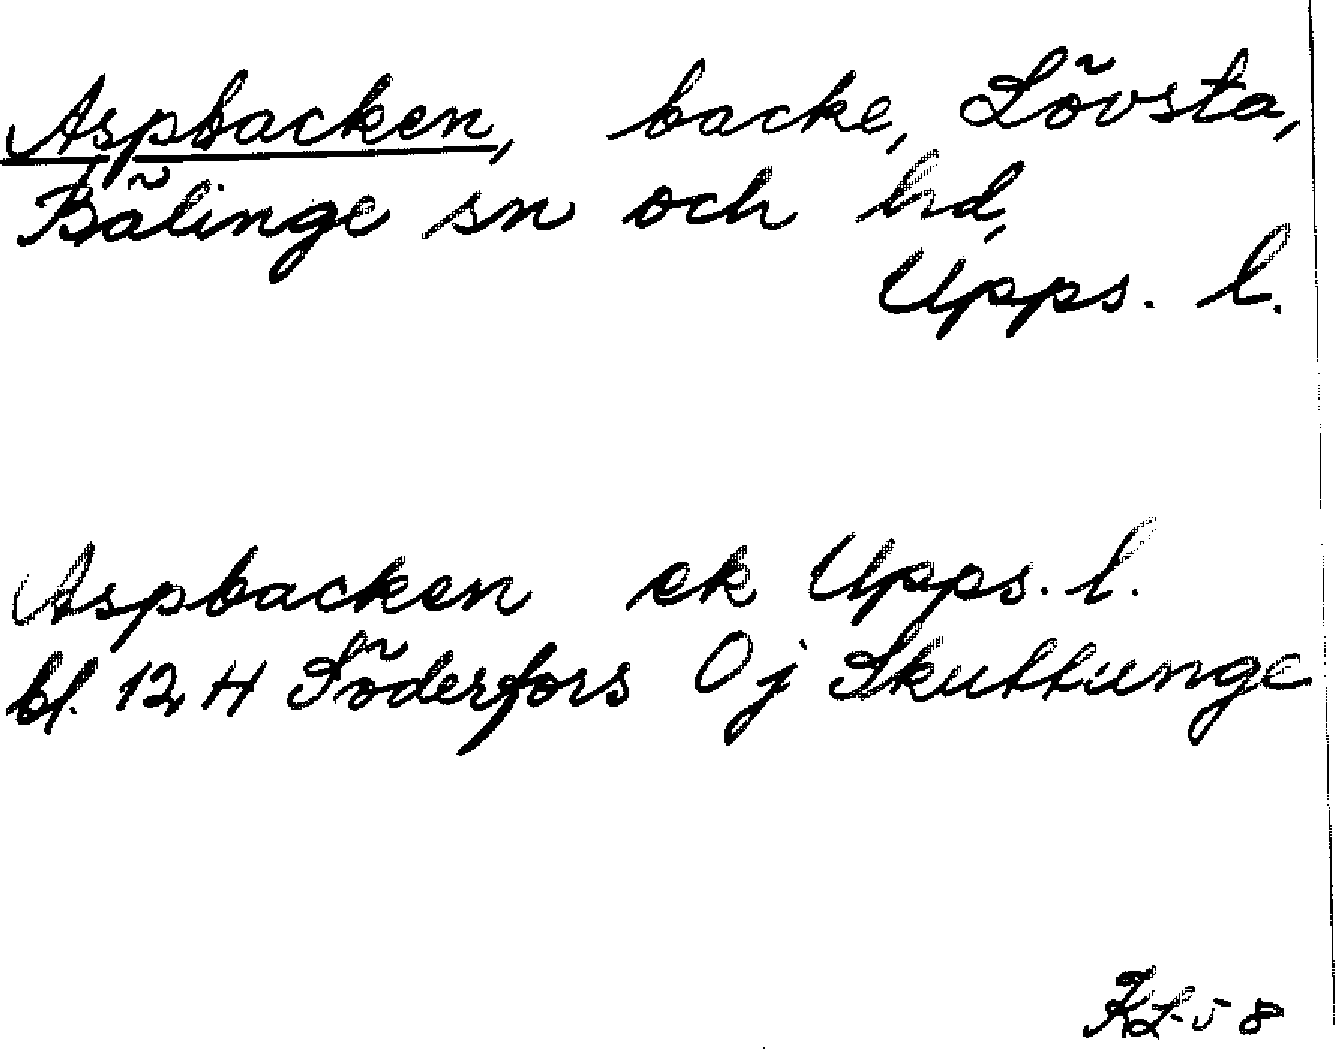 Aspbacken, backe, Lövsta,
Bälinge sn och hd,
Upps. l.
Aspbacken ek Upps. l.
bl. 12 H Söderfors 0 j Skuttunge